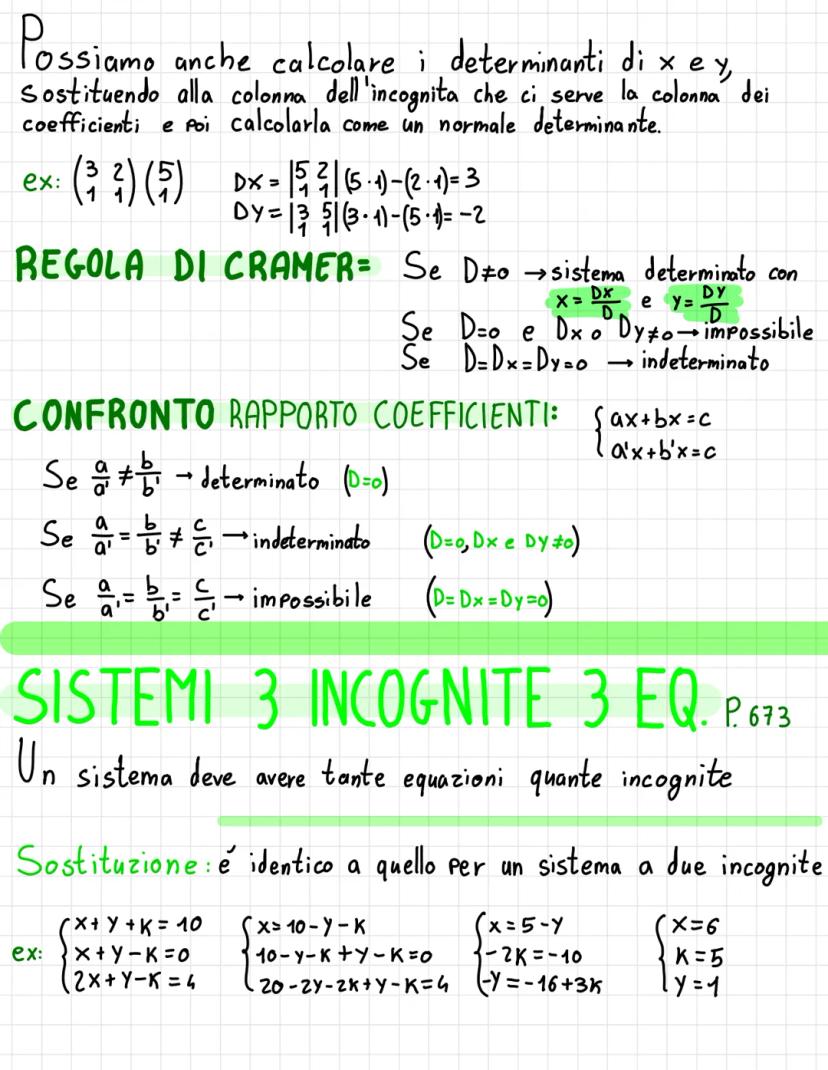 Possiamo anche calcolare i determinanti di x e y,
sostituendo alla colonna dell'incognita che ci serve la colonna dei
coefficienti e poi calcolarla come un normale determinante.
ex: (3 2 / 1 1) (5 / 1) Dx = |5 2 / 1 1| (5·1)-(2·1)=3
Dy = |3 5 / 1 1| (3·1)-(5·1)= -2
REGOLA DI CRAMER= Se D≠0 → sistema determinato con
x = Dx/D e y = Dy/D
Se D=0 e Dx o Dy≠0 → impossibile
Se D=Dx=Dy=0 → indeterminato
CONFRONTO RAPPORTO COEFFICIENTI: { ax+bx=c
a'x+b'x=c
Se a/a' ≠ b/b' → determinato (D=0)
Se a/a' = b/b' ≠ c/c' → indeterminato (D=0, Dx e Dy≠0)
Se a/a' = b/b' = c/c' → impossibile (D=Dx=Dy=0)
SISTEMI 3 INCOGNITE 3 EQ. P. 673
Un sistema deve avere tante equazioni quante incognite
Sostituzione: é identico a quello per un sistema a due incognite
ex: { x+y+k=10 { x=10-y-k { x=5-y { x=6
x+y-k=0 10-y-k+y-k=0 -2k=-10 k=5
2x+y-k=4 20-2y-2k+y-k=4 -y=-16+3k y=-1